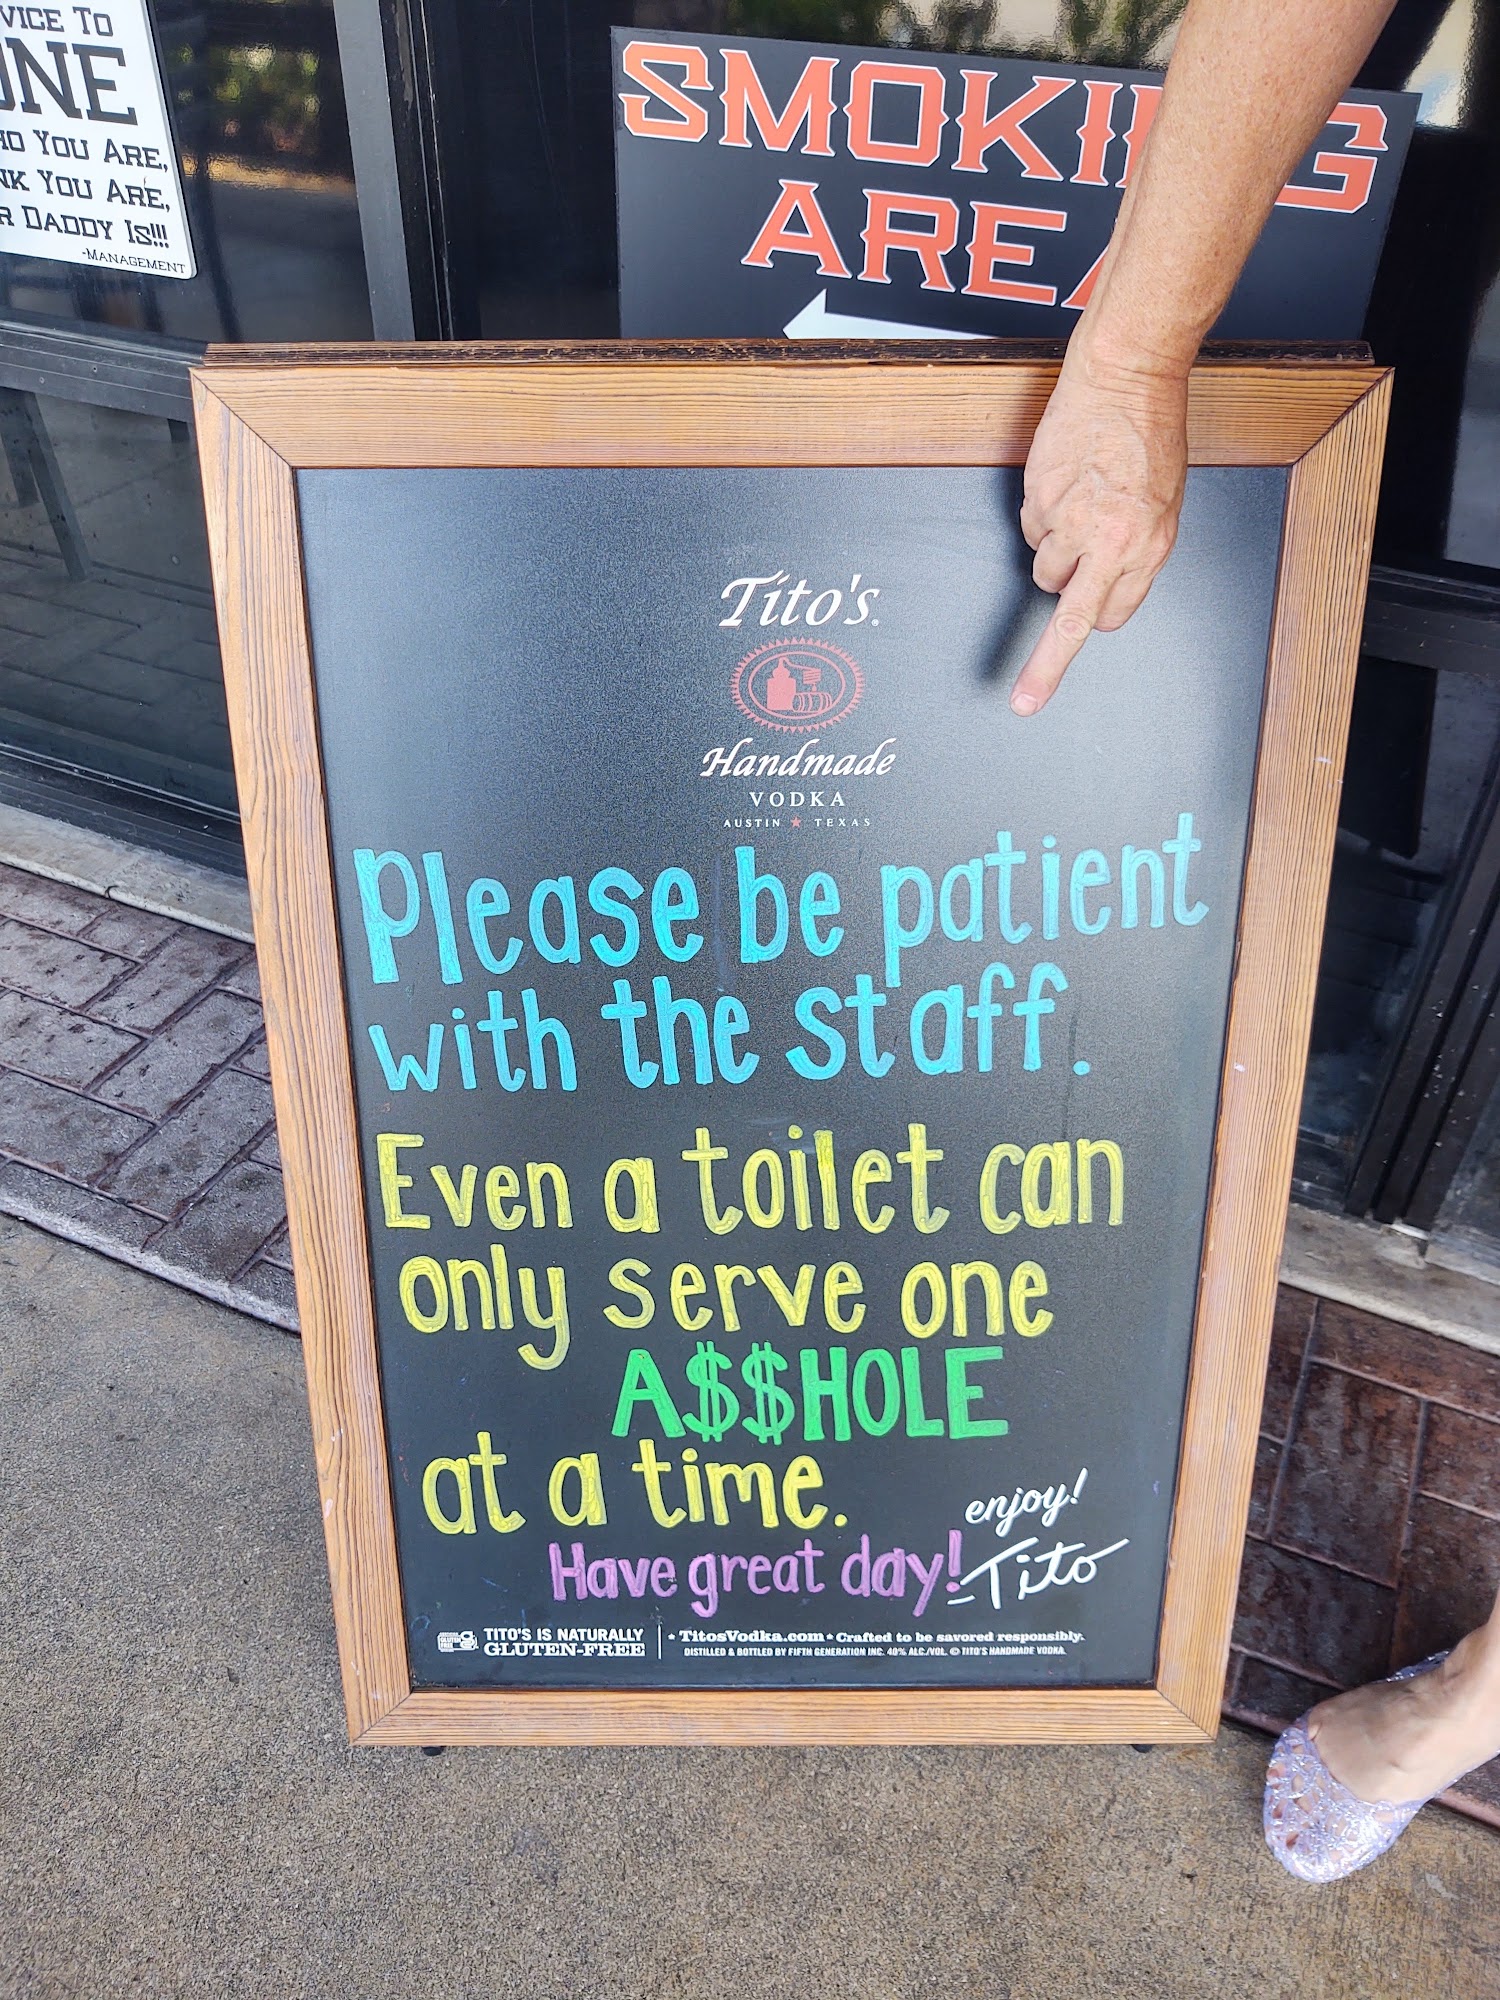 VICE TO
ONE
HO YOU ARE,
NK YOU ARE,
R DADDY IS!!!
-MANAGEMENT
SMOKING
AREA
Tito's
Handmade
VODKA
AUSTIN ★ TEXAS
Please be patient
with the staff.
Even a toilet can
only serve one
A$$HOLE
at a time.
enjoy!
Have great day!
-Tito
TITO'S IS NATURALLY
GLUTEN-FREE
* TitosVodka.com * Crafted to be savored responsibly.
DISTILLED & BOTTLED BY FIFTH GENERATION INC. 40% ALC./VOL. © TITO'S HANDMADE VODKA.